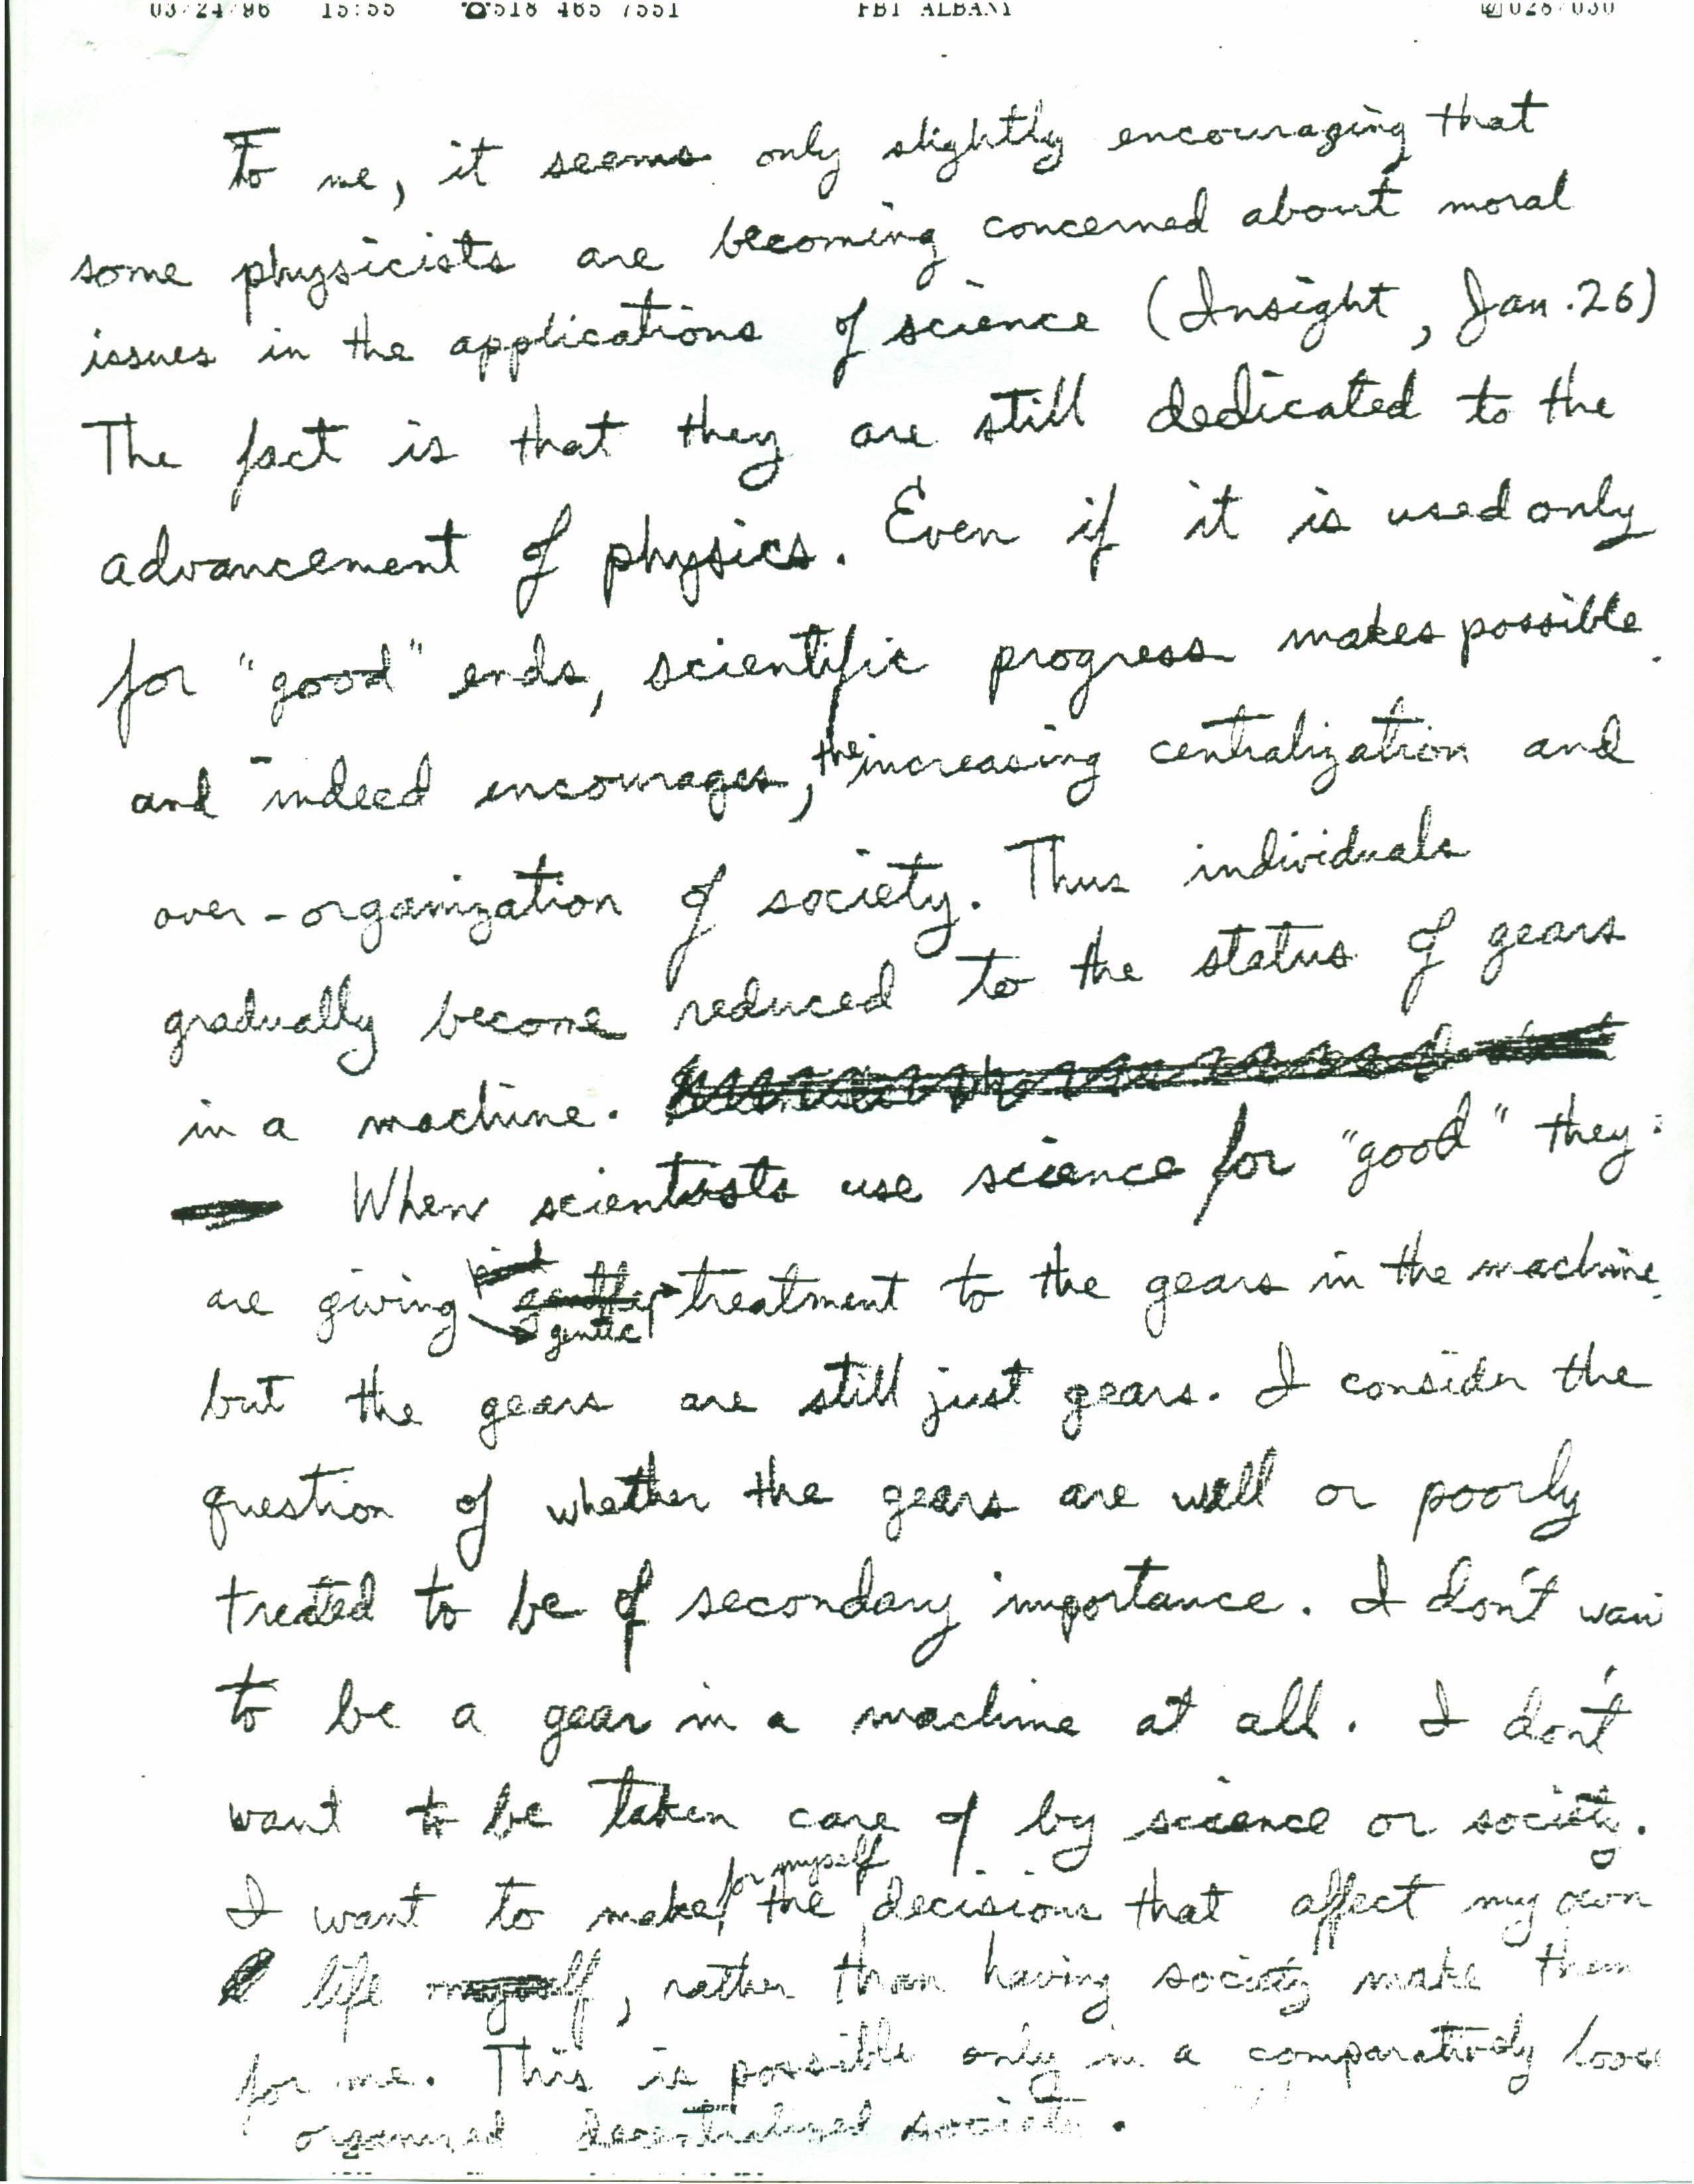 03/24/96 15:55 ☎518 465 7551 FBI ALBANY 028/030
To me, it seems only slightly encouraging that
some physicists are becoming concerned about moral
issues in the applications of science (Insight, Jan. 26)
The fact is that they are still dedicated to the
advancement of physics. Even if it is used only
for "good" ends, scientific progress makes possible
and indeed encourages, the increasing centralization and
over-organization of society. Thus individuals
gradually become reduced to the status of gears
in a machine.
When scientists use science for "good" they
are giving gentle treatment to the gears in the machine,
but the gears are still just gears. I consider the
question of whether the gears are well or poorly
treated to be of secondary importance. I don't wan
to be a gear in a machine at all. I don't
want to be taken care of by science or society.
I want to make for myself the decisions that affect my own
life myself, rather than having society make them
for me. This is possible only in a comparatively loose
organized decentralized society.